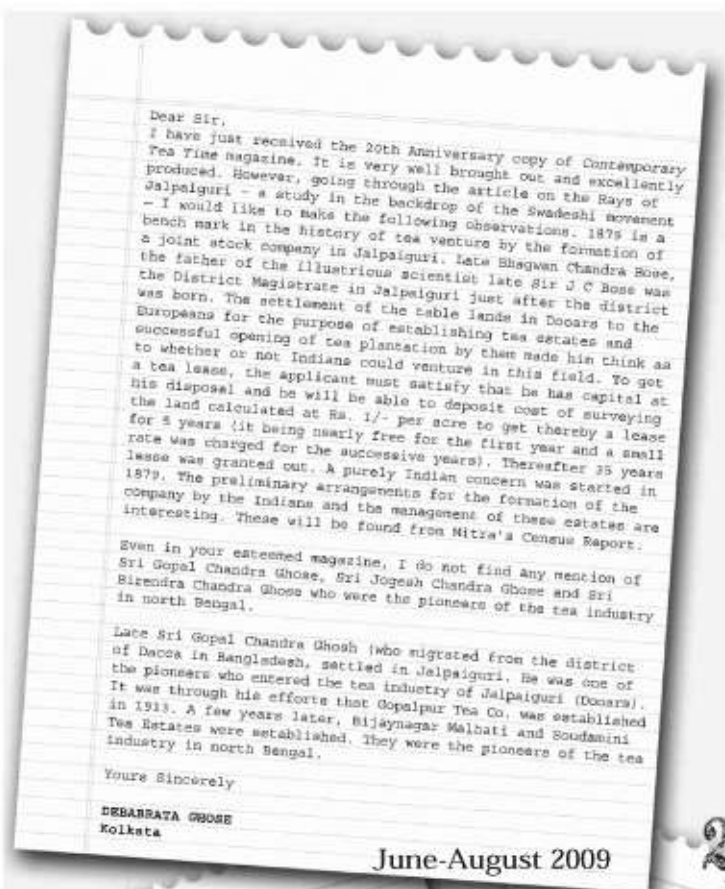 Dear Sir,
I have just received the 20th Anniversary copy of Contemporary
Tea Time magazine. It is very well brought out and excellently
produced. However, going through the article on the Rays of
Jalpaiguri - a study in the backdrop of the Swadeshi movement
- I would like to make the following observations. 1879 is a
bench mark in the history of tea venture by the formation of
a joint stock company in Jalpaiguri. Late Bhagwan Chandra Bose,
the father of the illustrious scientist late Sir J C Bose was
the District Magistrate in Jalpaiguri just after the district
was born. The settlement of the table lands in Dooars to the
Europeans for the purpose of establishing tea estates and
successful opening of tea plantation by them made him think as
to whether or not Indians could venture in this field. To get
a tea lease, the applicant must satisfy that he has capital at
his disposal and he will be able to deposit cost of surveying
the land calculated at Rs. 1/- per acre to get thereby a lease
for 5 years (it being nearly free for the first year and a small
rate was charged for the successive years). Thereafter 35 years
lease was granted out. A purely Indian concern was started in
1879. The preliminary arrangements for the formation of the
company by the Indians and the management of these estates are
interesting. These will be found from Mitra's Census Report.
Even in your esteemed magazine, I do not find any mention of
Sri Gopal Chandra Ghose, Sri Jogesh Chandra Ghose and Sri
Birendra Chandra Ghose who were the pioneers of the tea industry
in north Bengal.
Late Sri Gopal Chandra Ghosh (who migrated from the district
of Dacca in Bangladesh, settled in Jalpaiguri. He was one of
the pioneers who entered the tea industry of Jalpaiguri (Dooars).
It was through his efforts that Gopalpur Tea Co. was established
in 1913. A few years later, Bijaynagar Malhati and Soudamini
Tea Estates were established. They were the pioneers of the tea
industry in north Bengal.
Yours Sincerely
DEBABRATA GHOSE
Kolkata
June-August 2009
2